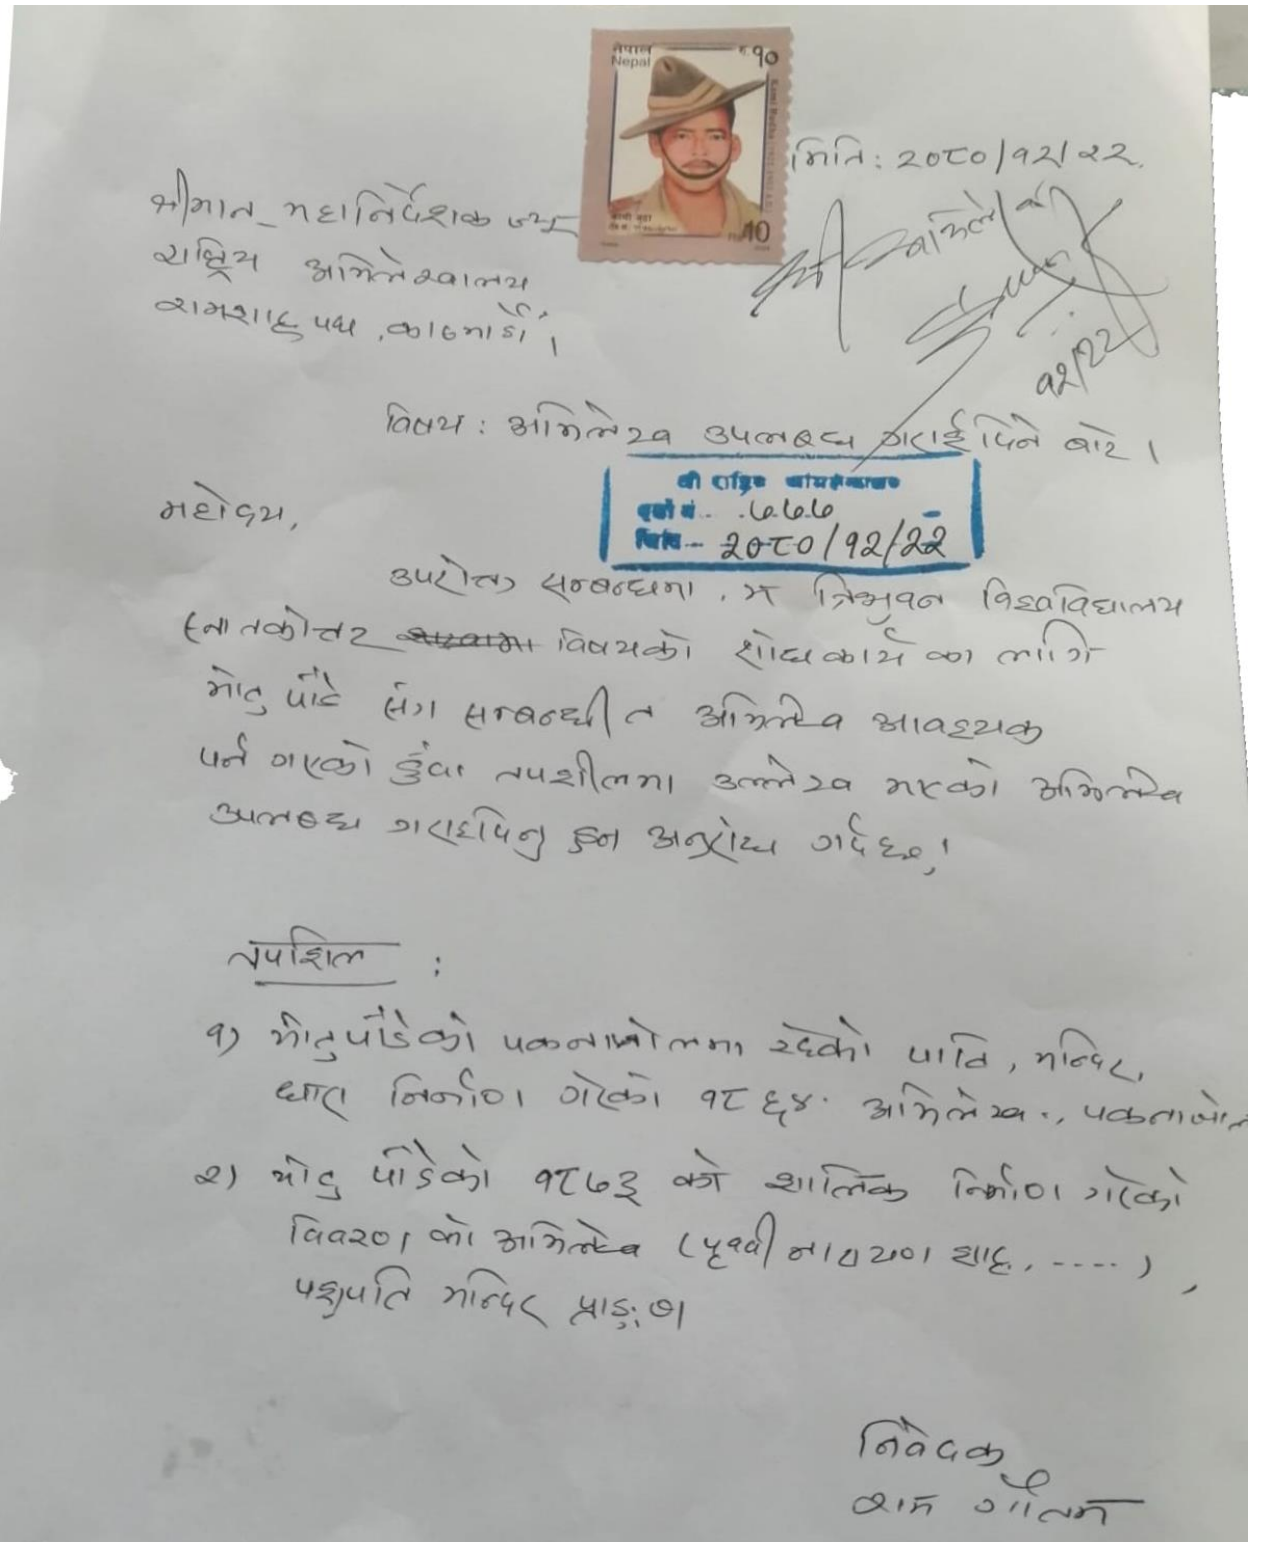 नेपाल
Nepal
रु १०
Rs 10
मिति: २०८०/१२/२२
श्रीमान महानिर्देशक ज्यू
राष्ट्रिय अभिलेखालय
रामशाह पथ, काठमाडौं ।
श्री अभिलेख
१२/२२
विषय: अभिलेख उपलब्ध गराईदिने बारे ।
श्री राष्ट्रिय अभिलेखालय
दर्ता नं. ७७७
मिति २०८०/१२/२२
महोदय,
उपरोक्त सम्बन्धमा, म त्रिभुवन विश्वविद्यालय
स्नातकोत्तर विषयको शोधकार्य का लागि
भोटु पाँडे संग सम्बन्धीत अभिलेख आवश्यक
पर्न गएको हुँदा तपशीलमा उल्लेख भएको अभिलेख
उपलब्ध गराइदिनु हुन अनुरोध गर्दछु ।
तपशिल :
१) भोटु पाँडेको पकनाजोलमा रहेको पाटि, मन्दिर,
धारा निर्माण गरेको १८६४ अभिलेख, पकनाजोल
२) भोटु पाँडेको १८७३ को शालिक निर्माण गरेको
विवरण को अभिलेख (पृथ्वी नारायण शाह, ....),
पशुपति मन्दिर प्राङ्गण
निवेदक
राम गौतम